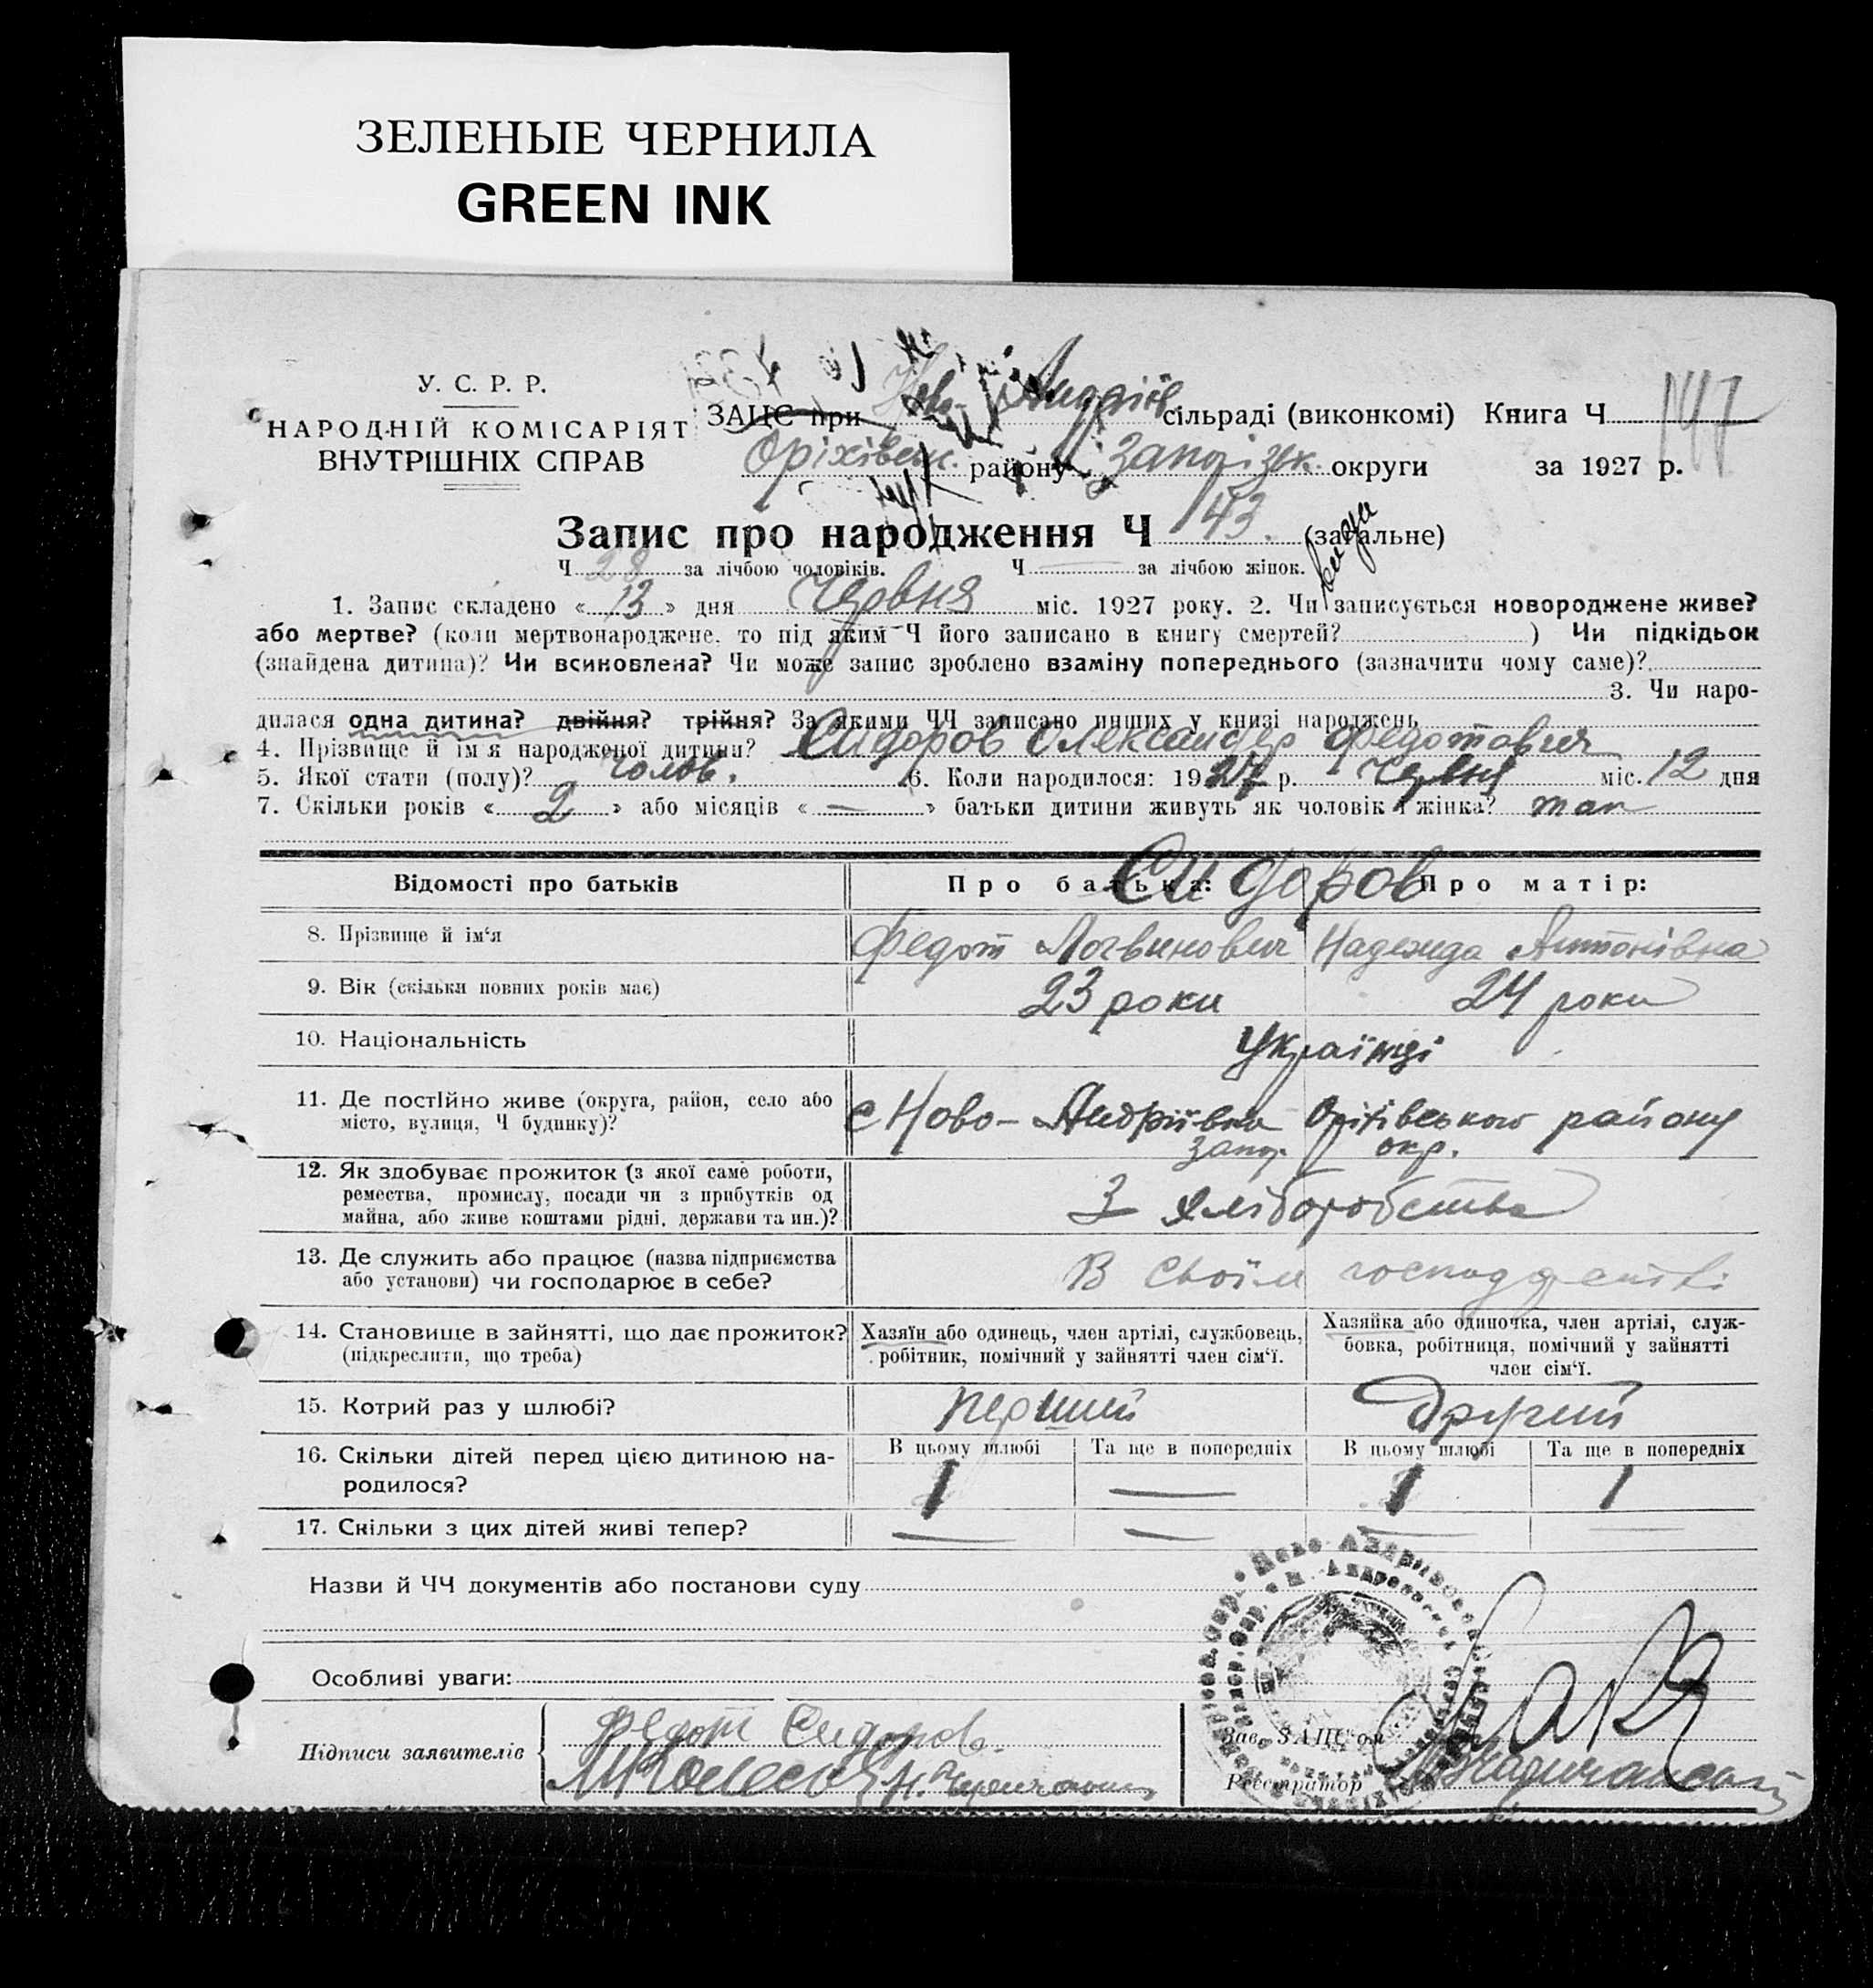 ЗЕЛЕНЫЕ ЧЕРНИЛА
GREEN INK
У. С. Р. Р.
НАРОДНІЙ КОМІСАРІЯТ
ВНУТРІШНІХ СПРАВ
ЗАЦС при Ново-Андріїв. сільраді (виконкомі) Книга Ч 147
Оріхівськ. району Запорізьк. округи за 1927 р.
Запис про народження Ч 143. (загальне)
Ч 28 за лічбою чоловіків. Ч — за лічбою жінок.
1. Запис складено « 13 » дня Червня міс. 1927 року. 2. Чи записується новороджене живе?
або мертве? (коли мертвонароджене, то під яким Ч його записано в книгу смертей? ) Чи підкідьок
(знайдена дитина)? Чи всиновлена? Чи може запис зроблено взаміну попереднього (зазначити чому саме)?
3. Чи наро-
дилася одна дитина? двійня? трійня? За якими ЧЧ записано инших у книзі народжень
4. Прізвище й ім'я народженої дитини? Сидоров Олександер Федотович
5. Якої стати (полу)? чолов. 6. Коли народилося: 1927 р. Червня міс. 12 дня
7. Скільки років « 2 » або місяців « — » батьки дитини живуть як чоловік і жінка? так
Відомості про батьків Про батька: Сидоров Про матір:
8. Прізвище й ім'я Федот Логвинович Надежда Антонівна
9. Вік (скільки повних років має) 23 роки 24 роки
10. Національність Українці
11. Де постійно живе (округа, район, село або
місто, вулиця, Ч будинку)? с Ново-Андріївка Оріхівського району
Запор. окр.
12. Як здобуває прожиток (з якої саме роботи,
ремества, промислу, посади чи з прибутків од
майна, або живе коштами рідні, держави та ин.)? З хліборобства
13. Де служить або працює (назва підприємства
або установи) чи господарює в себе? В своїм господарстві
14. Становище в зайнятті, що дає прожиток?
(підкреслити, що треба)
Хазяїн або одинець, член артілі, службовець,
робітник, помічний у зайнятті член сім'ї.
Хазяйка або одиночка, член артілі, служ-
бовка, робітниця, помічний у зайнятті
член сім'ї.
15. Котрий раз у шлюбі? перший Другий
16. Скільки дітей перед цією дитиною на-
родилося?
В цьому шлюбі Та ще в попередніх В цьому шлюбі Та ще в попередніх
1 — 1 1
17. Скільки з цих дітей живі тепер? — — — —
Назви й ЧЧ документів або постанови суду
Особливі уваги:
Підписи заявителів Федот Сидоров.
Зав. ЗАЦС'ом
Реєстратор